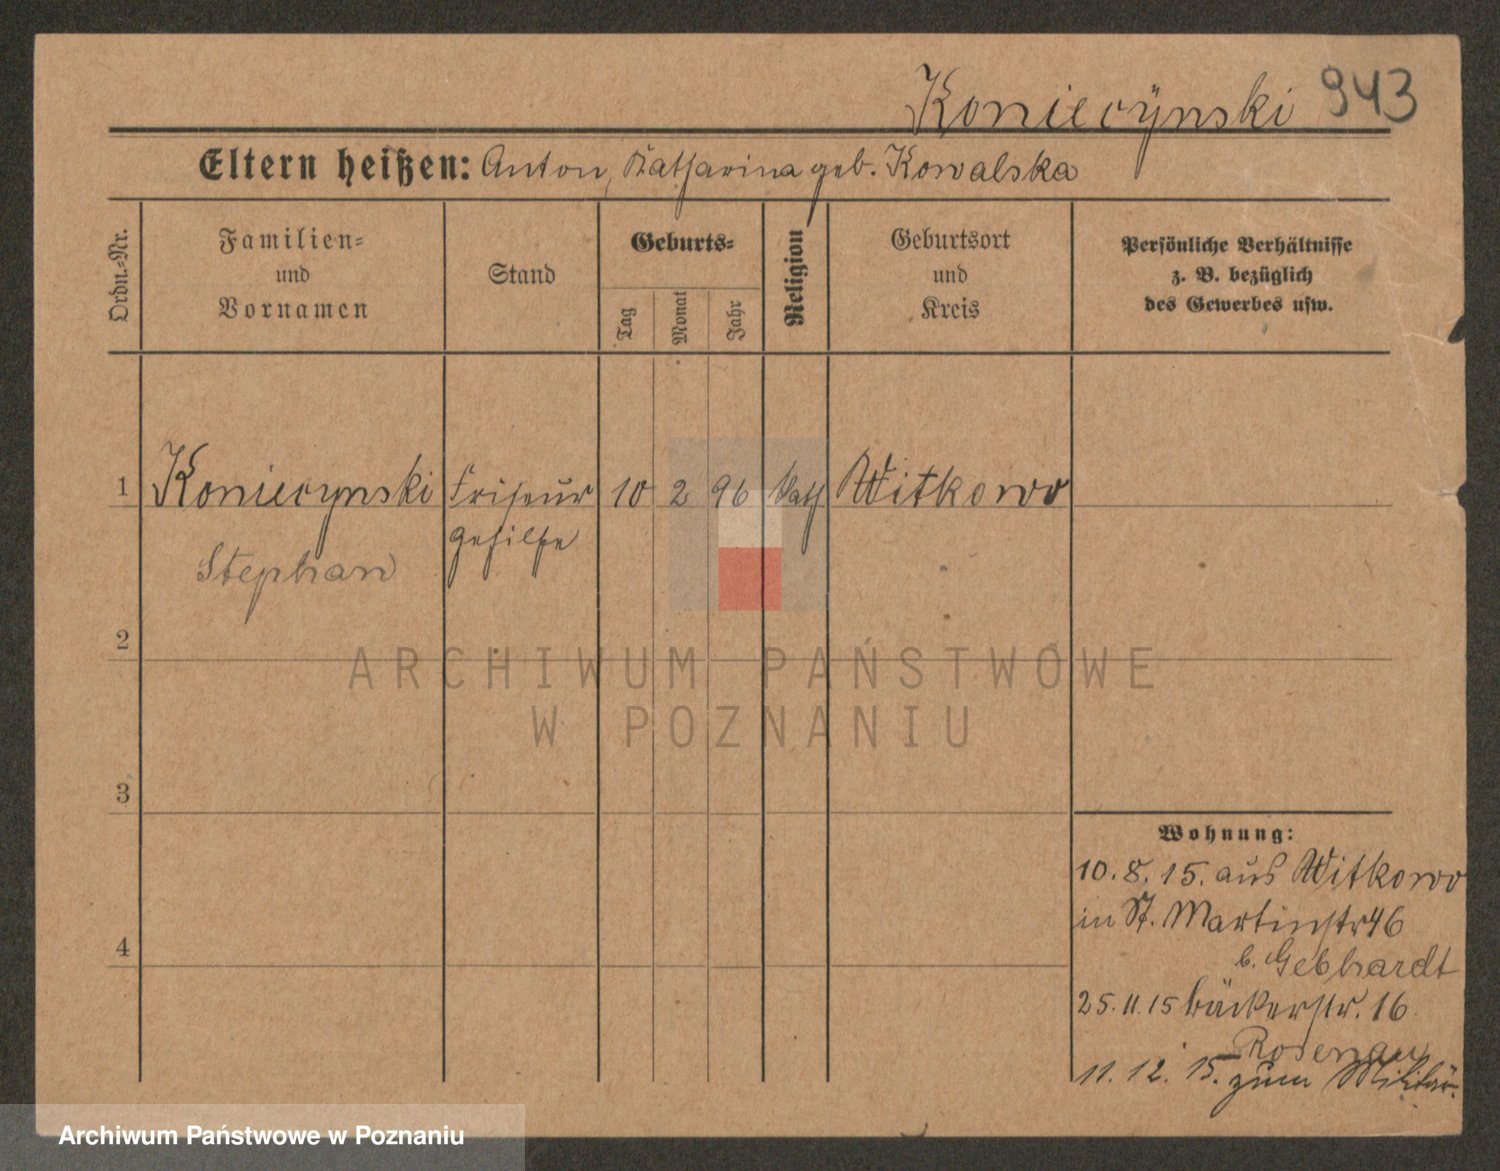 Koniecynski 943
Eltern heißen: Anton, Katharina geb. Kowalska
Ordn.-Nr.
Familien-
und
Vornamen
Stand
Geburts-
Tag
Monat
Jahr
Religion
Geburtsort
und
Kreis
Persönliche Verhältnisse
z. B. bezüglich
des Gewerbes usw.
1 Koniecynski Friseur 10 2 96 Kath Witkowo
gehilfe
Stephan
2
ARCHIWUM PAŃSTWOWE
W POZNANIU
3
Wohnung:
10. 8. 15. aus Witkowo
in St. Martinstr 46
4
b. Gebhardt
25. 11. 15 Bäckerstr. 16.
Rosenau
11. 12. 15. zum Militär.
Archiwum Państwowe w Poznaniu